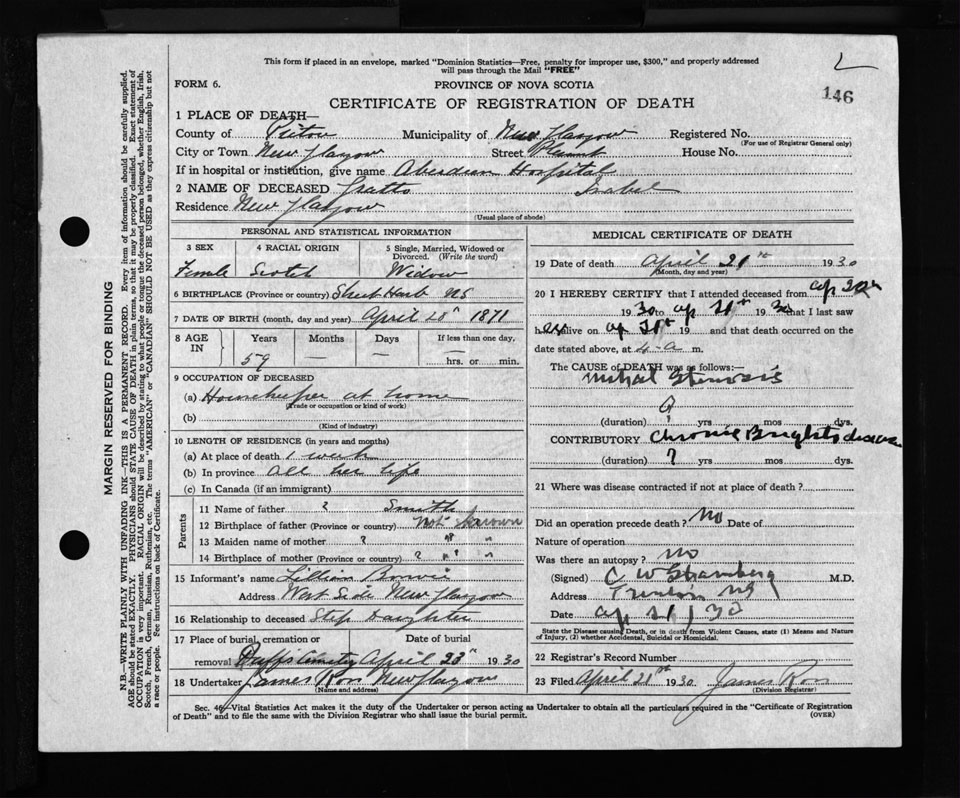 This form if placed in an envelope, marked "Dominion Statistics—Free, penalty for improper use, $300," and properly addressed
will pass through the Mail "FREE"
FORM 6. PROVINCE OF NOVA SCOTIA
146
CERTIFICATE OF REGISTRATION OF DEATH
1 PLACE OF DEATH—
County of Pictou Municipality of New Glasgow Registered No.
(For use of Registrar General only)
City or Town New Glasgow Street House No.
If in hospital or institution, give name Aberdeen Hospital
2 NAME OF DECEASED Gratto Isabel
Residence New Glasgow
(Usual place of abode)
PERSONAL AND STATISTICAL INFORMATION
3 SEX 4 RACIAL ORIGIN 5 Single, Married, Widowed or
Divorced. (Write the word)
Female Scotch Widow
6 BIRTHPLACE (Province or country) Sheet Harb NS
7 DATE OF BIRTH (month, day and year) April 1871
8 AGE IN Years Months Days If less than one day,
59 — — — hrs. or min.
9 OCCUPATION OF DECEASED
(a) Housekeeper at home
(Trade or occupation or kind of work)
(b)
(Kind of industry)
10 LENGTH OF RESIDENCE (in years and months)
(a) At place of death 1 week
(b) In province all her life
(c) In Canada (if an immigrant)
Parents
11 Name of father ? Smith
12 Birthplace of father (Province or country) Not Known
13 Maiden name of mother ? " "
14 Birthplace of mother (Province or country) ? " "
15 Informant's name Lillian
Address West Side New Glasgow
16 Relationship to deceased Step Daughter
17 Place of burial, cremation or Date of burial
removal Duffs Cemetry April 23" 1930
18 Undertaker James Ross New Glasgow
(Name and address)
MEDICAL CERTIFICATE OF DEATH
19 Date of death April 21th 1930
(Month, day and year)
20 I HEREBY CERTIFY that I attended deceased from ap 20th
1930 to ap 21th 1930 that I last saw
her alive on ap 21th 19 and that death occurred on the
date stated above, at 4-a m.
The CAUSE of DEATH was as follows:—
Mitral Stenosis
(duration) ? yrs. mos. dys.
CONTRIBUTORY Chronic Brights disease
(duration) ? yrs. mos. dys.
21 Where was disease contracted if not at place of death?
Did an operation precede death? No Date of
Nature of operation
Was there an autopsy? no
(Signed) C W Stramberg M.D.
Address Trenton NS
Date ap 21/30
State the Disease causing Death, or in death from Violent Causes, state (1) Means and Nature
of Injury, (2) whether Accidental, Suicidal or Homicidal.
22 Registrar's Record Number
23 Filed April 21th 1930 James Ross
(Division Registrar)
Sec. 46—Vital Statistics Act makes it the duty of the Undertaker or person acting as Undertaker to obtain all the particulars required in the "Certificate of Registration
of Death" and to file the same with the Division Registrar who shall issue the burial permit.
(OVER)
MARGIN RESERVED FOR BINDING
N.B.—WRITE PLAINLY WITH UNFADING INK—THIS IS A PERMANENT RECORD. Every item of information should be carefully supplied.
AGE should be stated EXACTLY. PHYSICIANS should STATE CAUSE OF DEATH in plain terms, so that it may be properly classified. Exact statement of
OCCUPATION is very important. RACIAL ORIGIN will be described by stating to what people or tongue the deceased person belonged, whether English, Irish,
Scotch, French, German, Russian, Ruthenian, etc. The terms "AMERICAN" or "CANADIAN" SHOULD NOT BE USED as they express citizenship but not
a race or people. See instructions on back of Certificate.